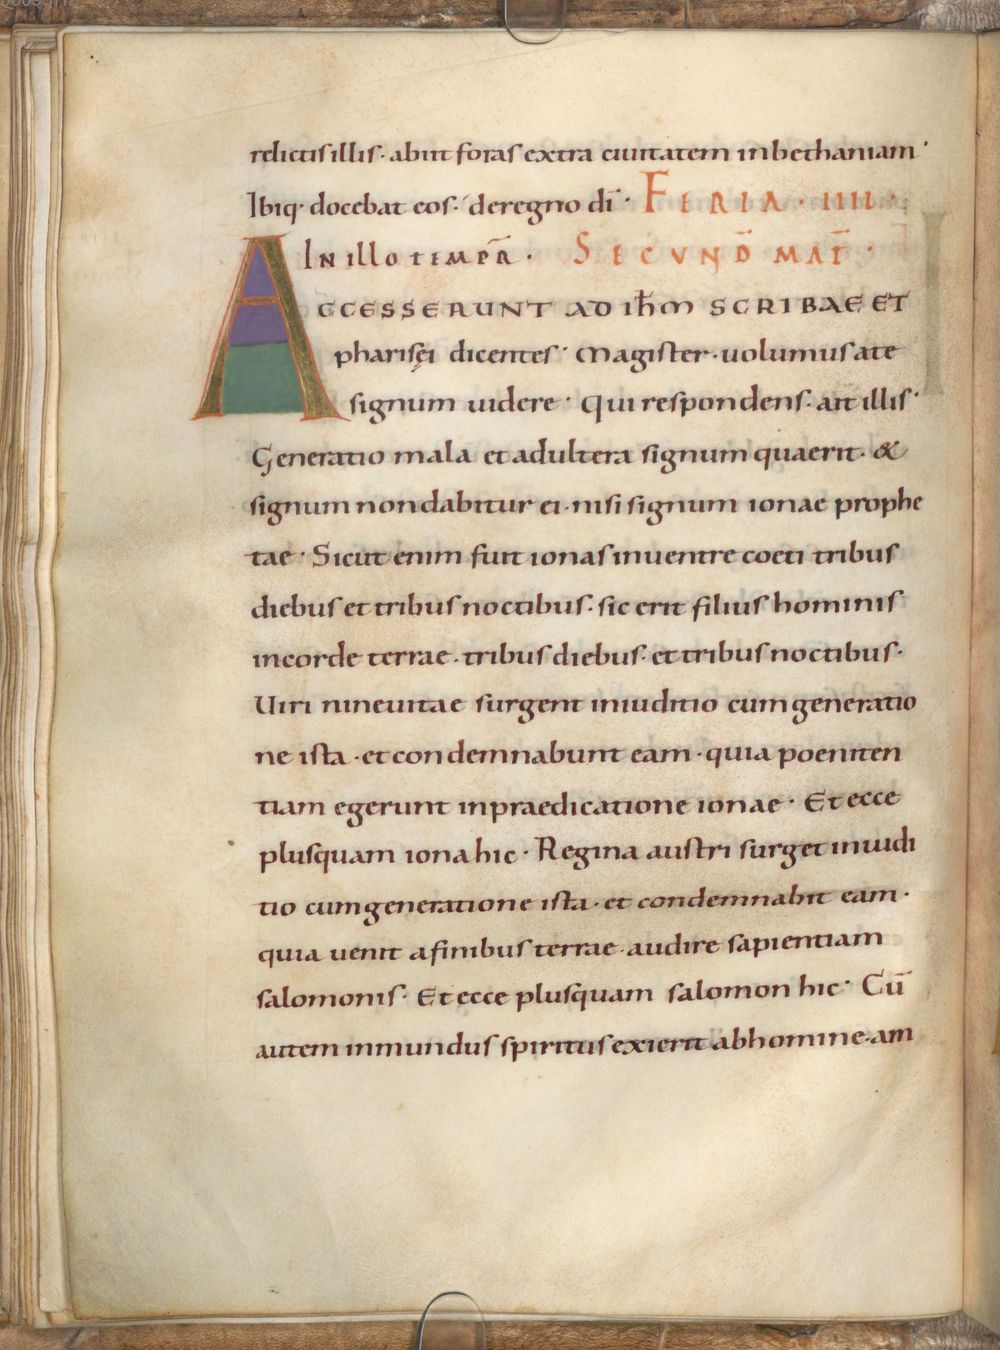 relictis illis· abiit foras extra ciuitatem in bethaniam·
Ibiq· docebat eos· de regno dī· FERIA · IIII ·
IN illo tempr̄ · SECVND̄ MAT̄ ·
ACCESSERUNT AD IH̄M SCRIBAE ET
pharisęi dicentes· Magister· uolumus a te
signum uidere· Qui respondens· ait illis·
Generatio mala et adultera signum quaerit· &
signum non dabitur ei· nisi signum ionae prophe
tae· Sicut enim fuit ionas in uentre coeti tribus
diebus et tribus noctibus· sic erit filius hominis
in corde terrae· tribus diebus· et tribus noctibus·
Uiri nineuitae surgent in iuditio cum generatio
ne ista· et condemnabunt eam· quia poeniten
tiam egerunt in praedicatione ionae· Et ecce
plusquam iona hic· Regina austri surget in iudi
tio cum generatione ista· et condemnabit eam·
quia uenit a finibus terrae audire sapientiam
salomonis· Et ecce plusquam salomon hic· Cū
autem inmundus spiritus exierit ab homine· am